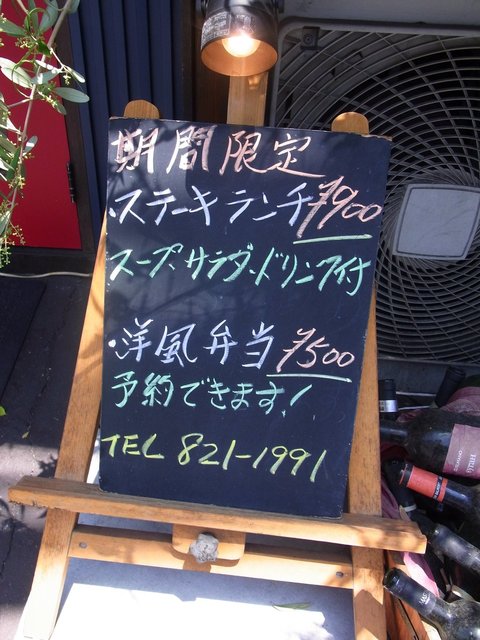 期間限定
・ステーキランチ ¥900
スープ、サラダ、ドリンク付
・洋風弁当 ¥500
予約できます!
TEL 821-1991